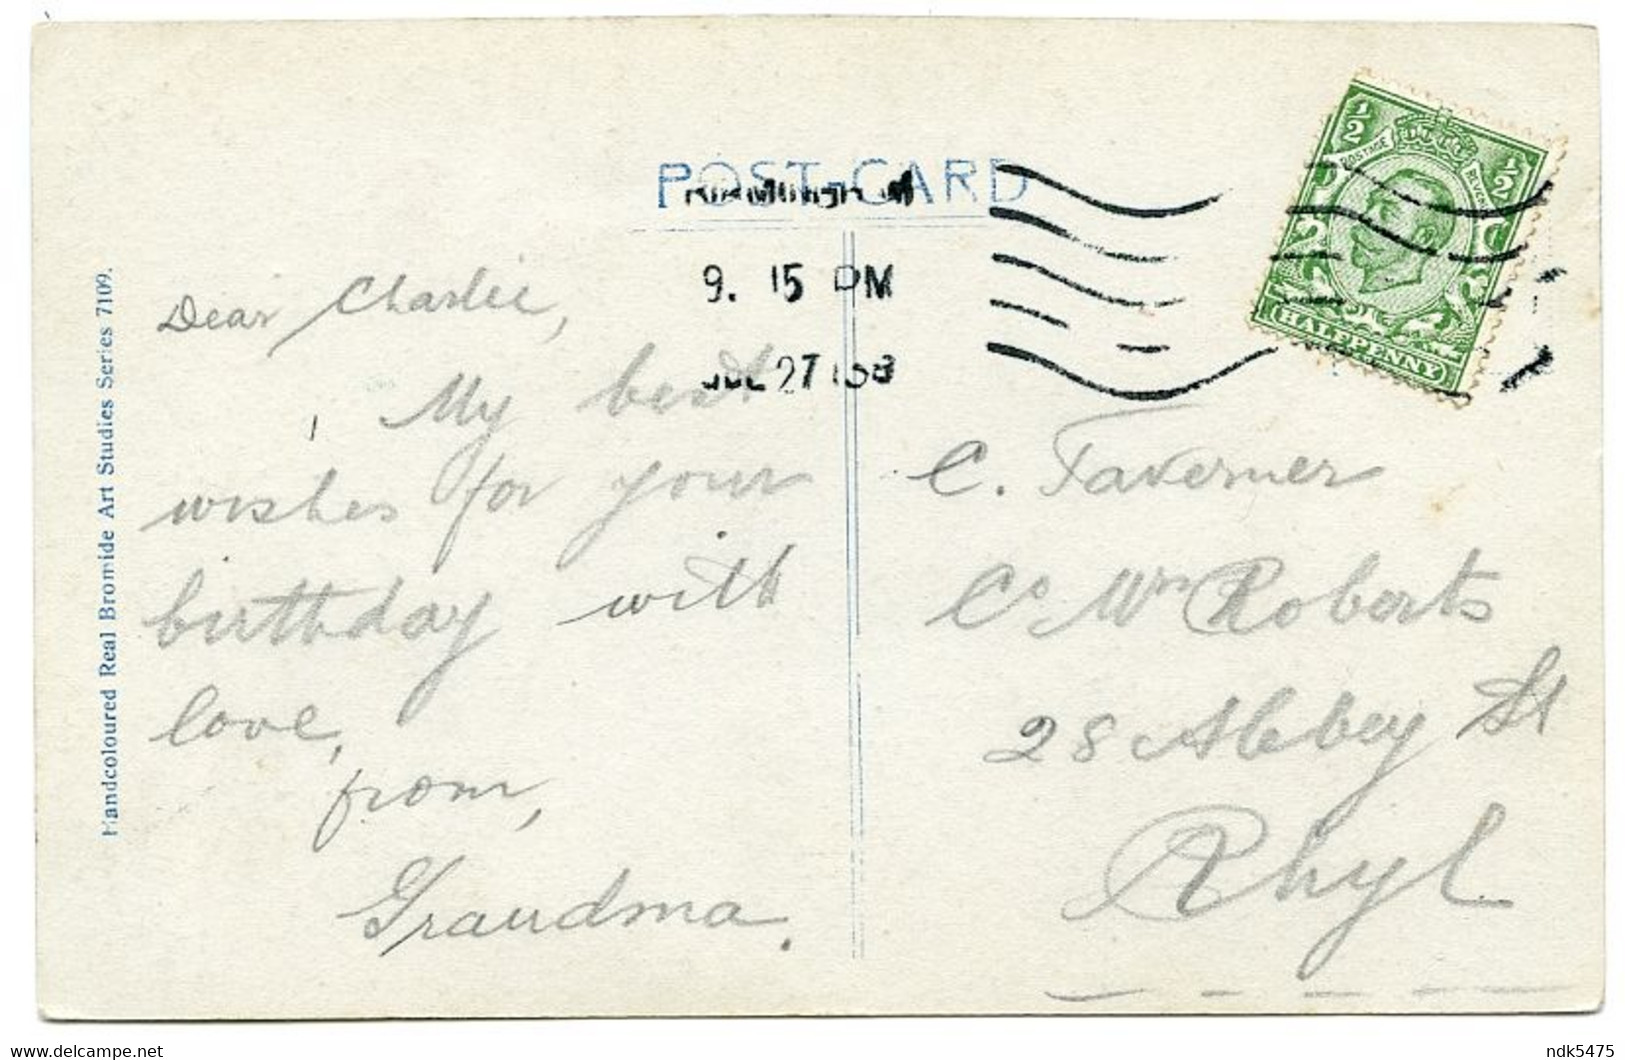 POST-CARD
BIRMINGHAM
9. 15 PM
JUL 27
1/2
1/2
POSTAGE
REVENUE
HALFPENNY
Handcoloured Real Bromide Art Studies Series 7109.
Dear Charlie,
My best
wishes for your
birthday with
love,
from,
Grandma.
C. Taverner
Co Wm Roberts
28 Abbey St
Rhyl
delcampe.net
ndk5475